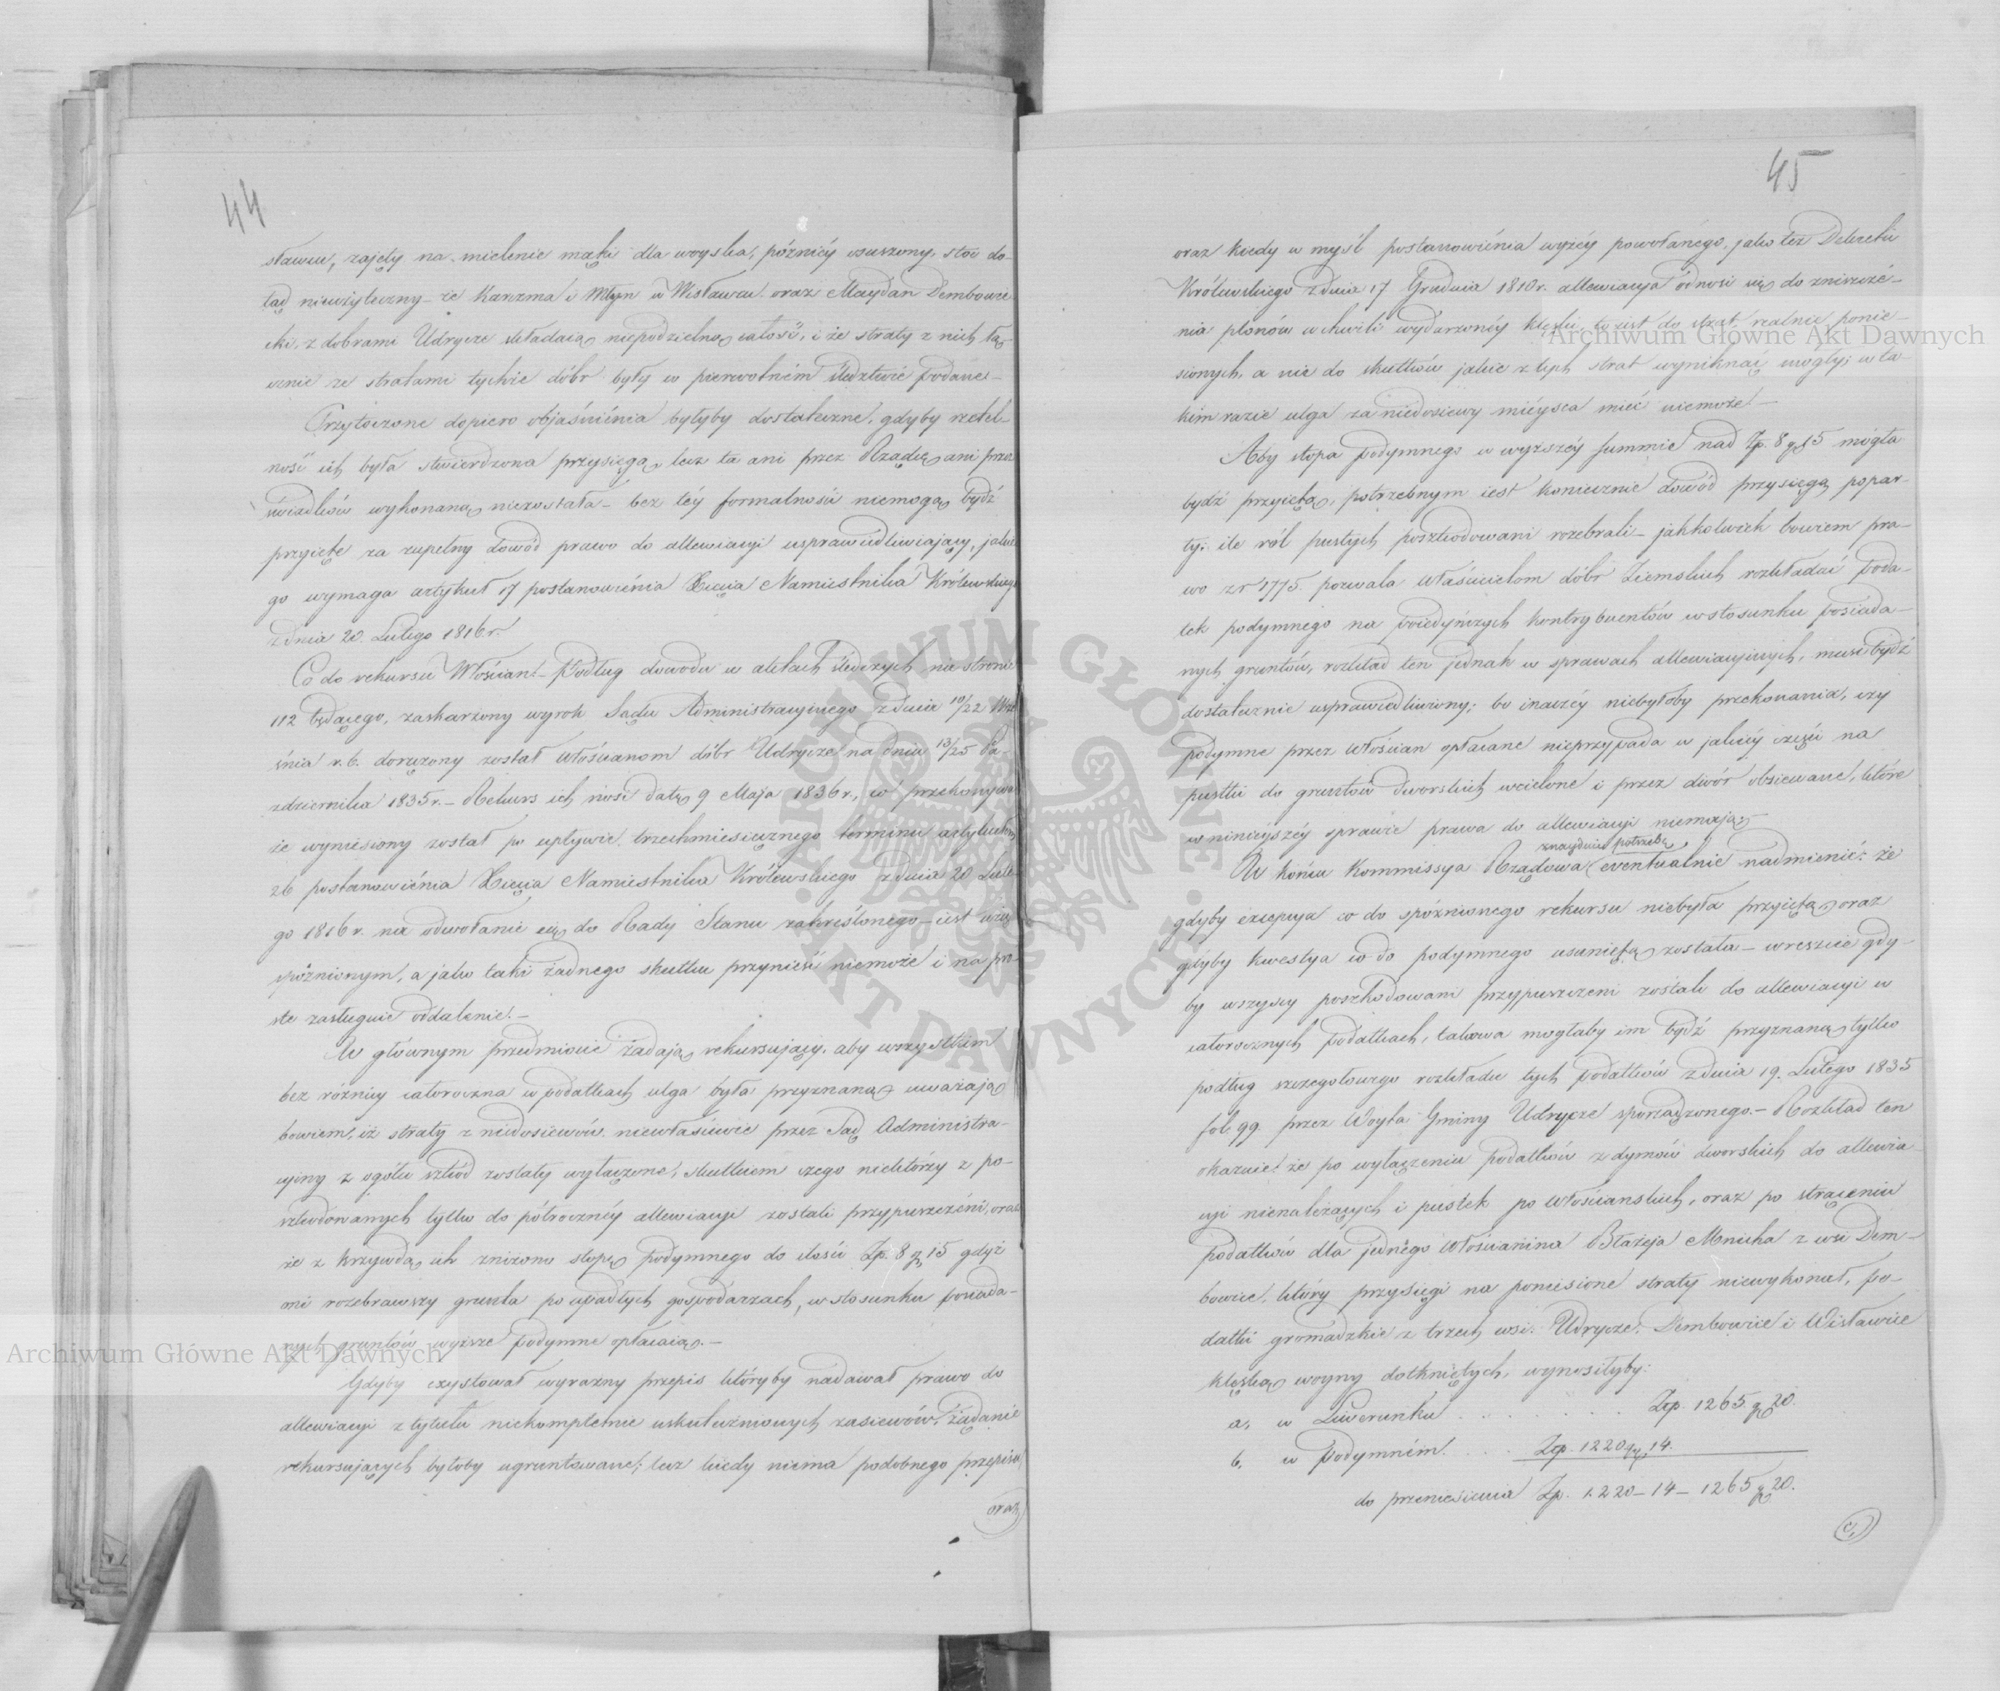 44
sławcu, zajęty na mielenie mąki dla woyska, późniéy osuszony, stoi do-
tąd nieużyteczny – że Karczma i Młyn w Wisławcu oraz Maydan Dembowie
cki, z dobrami Udrycze składaią niepodzielną całość, i że straty z nich łą-
cznie ze stratami tychże dóbr były w pierwotném śledztwie podane. –
Przytoczone dopiero objaśnienia byłyby dostateczne, gdyby rzetel-
ność ich była stwierdzona przysięgą, lecz ta ani przez Rządcę, ani przez
świadków wykonaną niezostała – bez téy formalności niemogą bydź
przyięte za zupełny dowód prawo do allewiacyi usprawiedliwiający, jakie-
go wymaga artykuł 17 postanowienia Xięcia Namiestnika Królewskiego
z dnia 20. Lutego 1816 r.
Co do rekursu Włościan – Podług dowodu w aktach śledczych na stronie
112 będącego, zaskarżony wyrok Sądu Administracyjnego z dnia 10/22 Wrze
śnia r. b. doręczony został włościanom dóbr Udrycze na dniu 13/25 Pa-
ździernika 1835 r. – Rekurs ich nosi datę 9 Maja 1836 r., co przekonywa
że wyniesiony został po upływie trzechmiesięcznego terminu artykułem
26 postanowienia Xięcia Namiestnika Królewskiego z dnia 20 Lute-
go 1816 r. na odwołanie się do Rady Stanu zakreślonego – iest więc
spóźnionym, a jako taki żadnego skutku przynieść niemoże i na pro-
ste zasługuie oddalenie. –
W głównym przedmiocie żądają rekursujący, aby wszystkim
bez różnicy całoroczna w podatkach ulga była przyznaną, uważają
bowiem, iż straty z niedosiewów niewłaściwie przez Sąd Administra-
cyiny z ogółu szkód zostały wyłączone, skutkiem czego niektórzy z po-
szkodowanych tylko do półrocznéy allewiacyi zostali przypuszczeni, oraz
że z krzywdą ich zniżono stopę podymnego do ilości Zp. 8 gr 15 gdyż
oni rozebrawszy grunta po upadłych gospodarzach, w stosunku posiada-
nych gruntów wyższe podymne opłacaią. –
Gdyby exystował wyraźny przepis któryby nadawał prawo do
allewiacyi z tytułu niekompletnie uskutecznionych zasiewów, żądanie
rekursujących byłoby ugruntowane; lecz kiedy niema podobnego przepisu
oraz
45
oraz kiedy w myśl postanowienia wyżéy powołanego, jako też Dekretu
Królewskiego z dnia 17 Grudnia 1810 r. allewiacya odnosi się do zniszcze-
nia plonów w chwili wydarzonéy klęski, to iest do strat realnie ponie-
sionych, a nie do skutków jakie z tych strat wyniknąć mogły; w ta-
kim razie ulga za niedosiewy mieysca mieć niemoże! –
Aby stopa podymnego w wyższéy summie nad Zp. 8 gr 15 mogła
bydź przyiętą, potrzebnym iest koniecznie dowód przysięgą popar-
ty, ile ról pustych poszkodowani rozebrali – jakkolwiek bowiem pra-
wo z r 1775. pozwala właścicielom dóbr Ziemskich rozkładać poda-
tek podymnego na poiedyńczych kontrybuentów w stosunku posiada-
nych gruntów, rozkład ten jednak w sprawach allewiacyjnych, musi bydź
dostatecznie usprawiedliwiony; bo inaczéy niebyłoby przekonania, czy
podymne przez włościan opłacane nieprzypada w jakiéy części na
pustki do gruntów dworskich wcielone i przez dwór obsiewane, które
w niniejszéy sprawie prawa do allewiacyi niemają. –
znayduie potrzebę
W końcu Kommissya Rządowa eventualnie nadmienić: że
gdyby excepcya co do spóźnionego rekursu niebyła przyiętą, oraz
gdyby kwestya co do podymnego usuniętą została – wreszcie gdy-
by wszyscy poszkodowani przypuszczeni zostali do allewiacyi w
całorocznych podatkach, takowa mogłaby im bydź przyznaną tylko
podług szczegółowego rozkładu tych podatków z dnia 19. Lutego 1835
fol: 99. przez Woyta Gminy Udrycze sporządzonego. – Rozkład ten
okazuie! że po wyłączeniu podatków z dymów dworskich do allewia-
cyi nienależących i pustek po włościańskich, oraz po strąceniu
podatków dla jednego włościanina Błażeja Mnicha z wsi Dem-
bowiec, który przysięgi na poniesione straty niewykonał, po-
datki gromadzkie z trzech wsi: Udrycze, Dembowiec i Wisławiec
klęską woyny dotkniętych, wynosiłyby:
a, w Liwerunku . . . . . . Zp. 1265 gr 20.
b, w Podymném . . . . Zp. 1220 gr 14.
do przeniesienia Zp. 1220 – 14 – 1265 gr 20.
c,
Archiwum Główne Akt Dawnych
Archiwum Główne Akt Dawnych
ARCHIWUM GŁÓWNE · AKT DAWNYCH ·